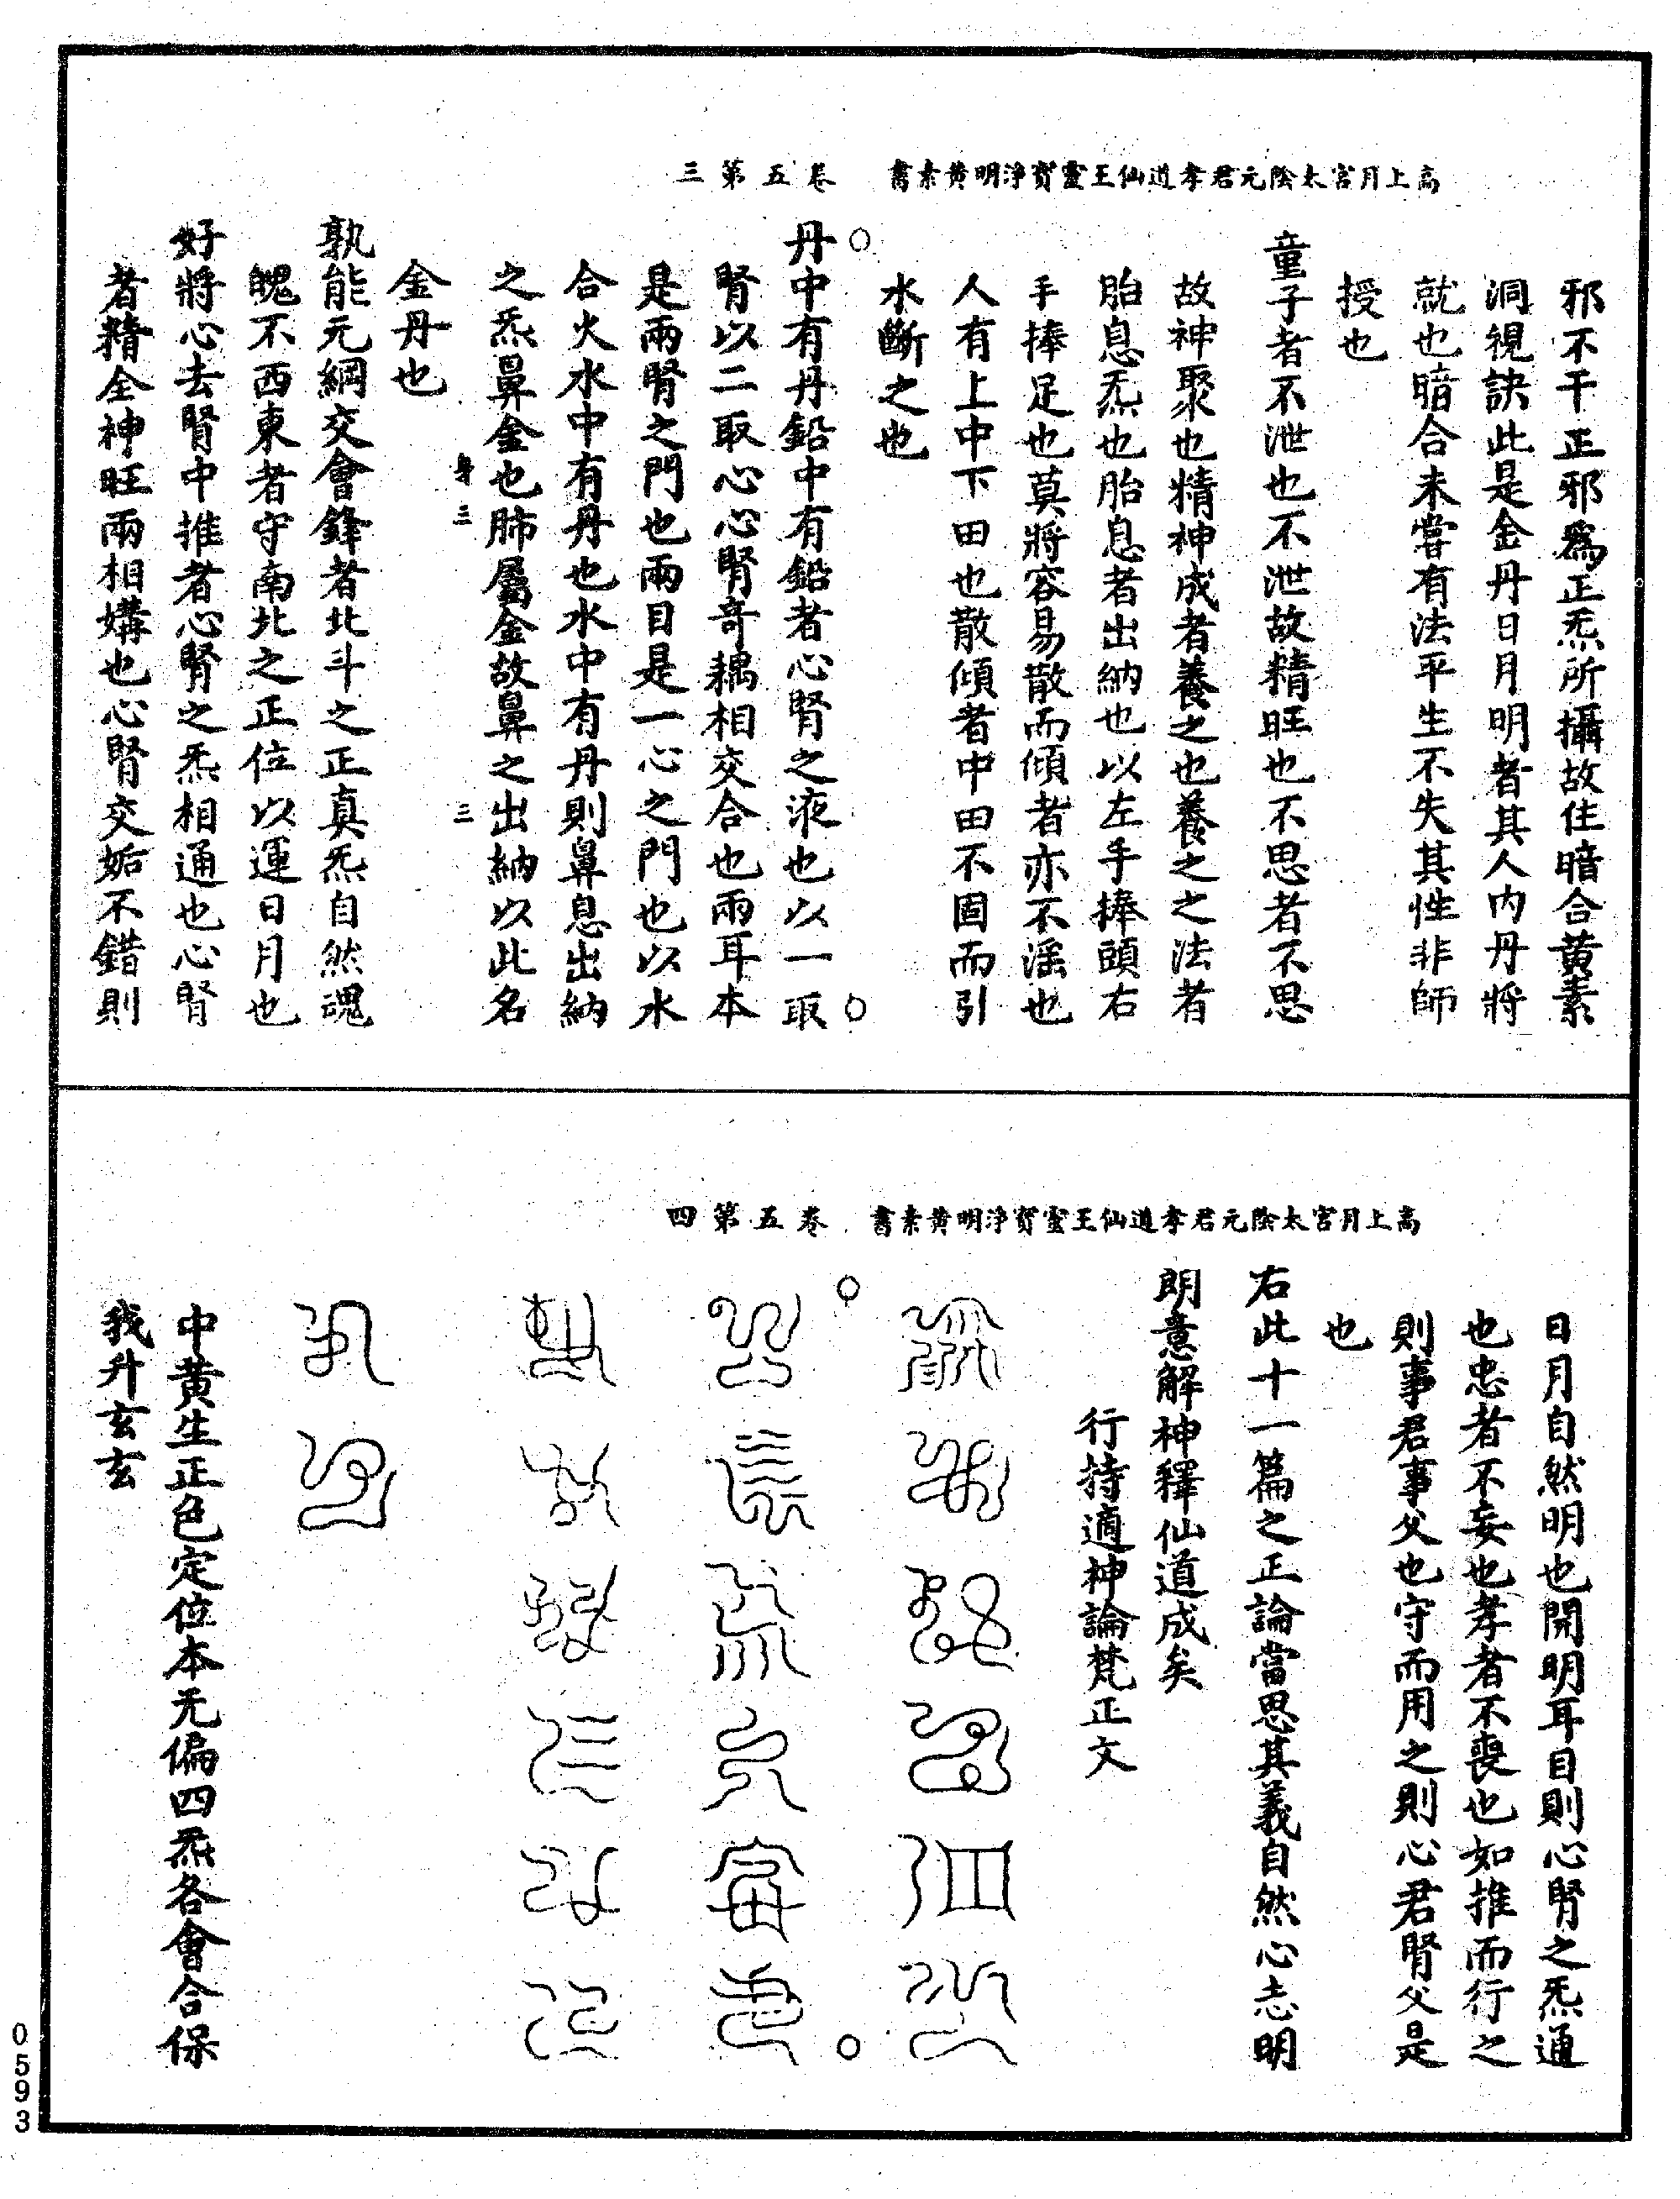 高上月宮太陰元君孝道仙王靈寳淨明黄素書　卷五第三
邪不干正邪爲正炁所攝故住暗合黄素
洞視訣此是金丹日月明者其人内丹將
就也暗合未嘗有法平生不失其性非師
授也
童子者不泄也不泄故精旺也不思者不思
故神聚也精神成者養之也養之之法者
胎息炁也胎息者出納也以左手捧頭右
手捧足也莫將容易散而傾者亦不淫也
人有上中下田也散傾者中田不固而引
水斷之也
丹中有丹鉛中有鉛者心腎之液也以一取
腎以二取心心腎竒耦相交合也兩耳本
是兩腎之門也兩目是一心之門也以水
合火水中有丹也水中有丹則鼻息出納
之炁鼻金也肺屬金故鼻之出納以此名
身三　三
金丹也
孰能元綱交會鋒者北斗之正真炁自然魂
魄不西東者守南北之正位以運日月也
好將心去腎中推者心腎之炁相通也心腎
者精全神旺兩相媾也心腎交姤不錯則
高上月宮太陰元君孝道仙王靈寳淨明黄素書　卷五第四
日月自然明也開明耳目則心腎之炁通
也忠者不妄也孝者不喪也如推而行之
則事君事父也守而用之則心君腎父是
也
右此十一篇之正論當思其義自然心志明
朗意解神釋仙道成矣
行持適神論梵正文
中黄生正色定位本无偏四炁各會合保
我升玄玄
0593